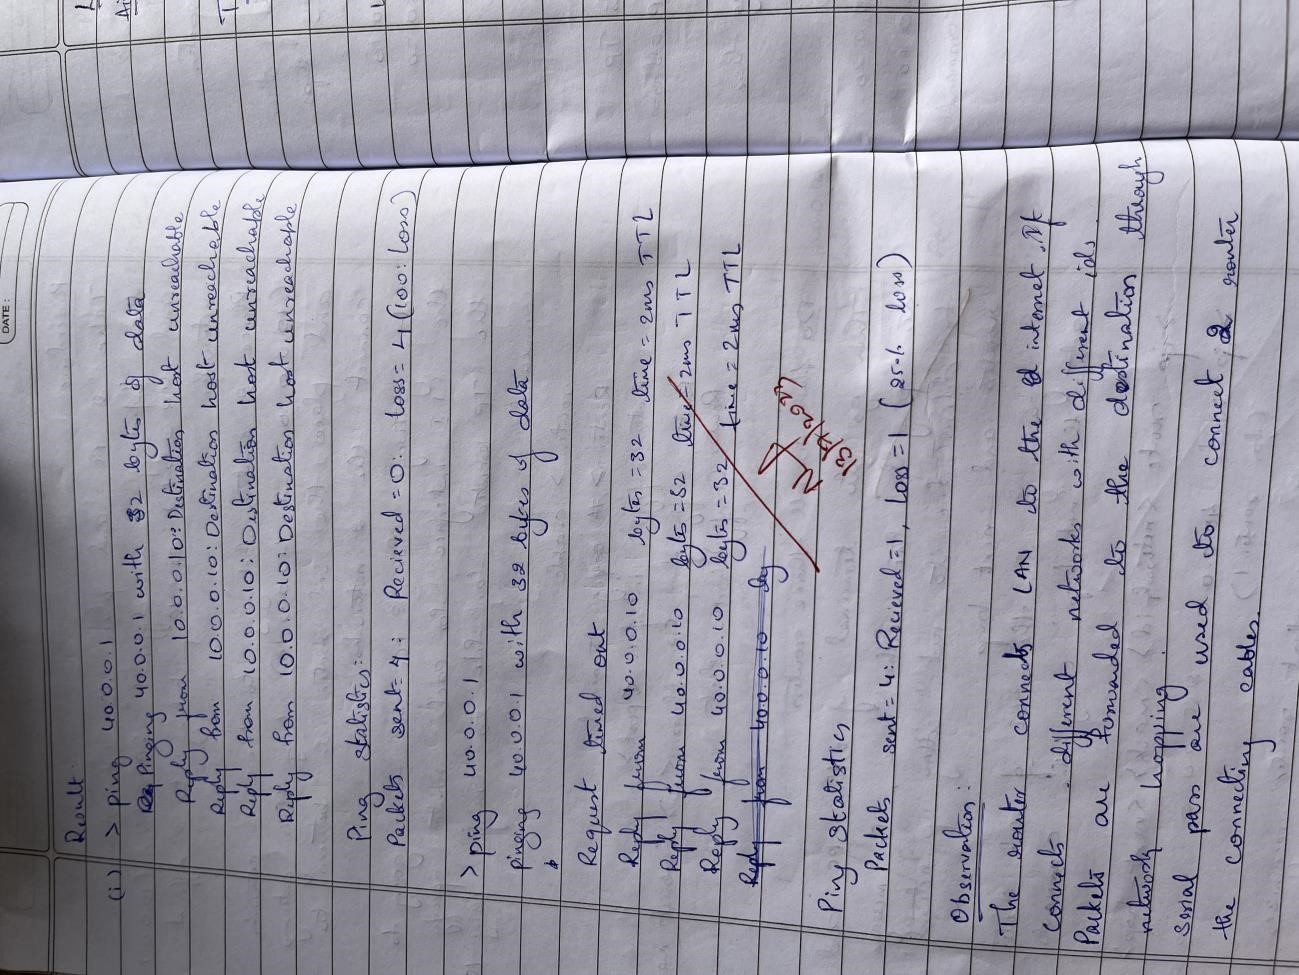 DATE:
Result
(i) > Ping 40.0.0.1
Pinging 40.0.0.1 with 32 bytes of data
Reply from 10.0.0.10: Destination host unreachable
Reply from 10.0.0.10: Destination host unreachable
Reply from 10.0.0.10: Destination host unreachable
Reply from 10.0.0.10: Destination host unreachable
Ping statistics:
Packets sent = 4: Recieved = 0. Loss = 4 (100: Loss)
> ping 40.0.0.1
Pinging 40.0.0.1 with 32 bytes of data
Request timed out
Reply from 40.0.0.10 bytes = 32 time = 2ms TTL
Reply from 40.0.0.10 bytes = 32 time = 2ms TTL
Reply from 40.0.0.10 bytes = 32 time = 2ms TTL
Reply from 40.0.0.10 by
Ping statistics
Packets sent = 4: Recieved = 1, Loss = 1 (25% loss)
Observation:
The router connects LAN to the internet. It
connects different networks with different ids
Packets are forwarded to the destination through
network hopping
Serial pass are used to connect 2 router
the connecting cables.